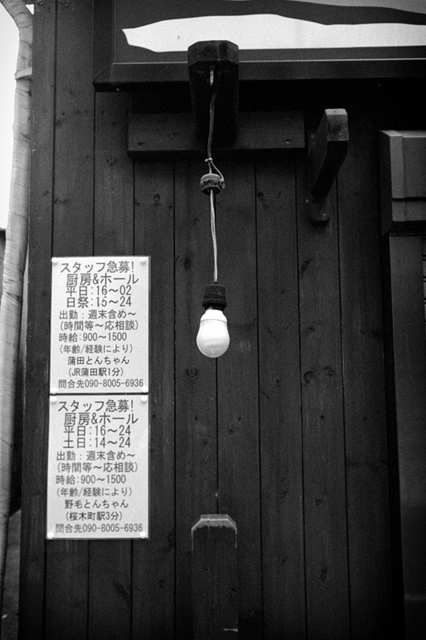 スタッフ急募!
厨房&ホール
平日:16〜02
日祭:15〜24
出勤:週末含め〜
(時間等〜応相談)
時給:900〜1500
(年齢/経験により)
蒲田とんちゃん
(JR蒲田駅1分)
問合先090-8005-6936
スタッフ急募!
厨房&ホール
平日:16〜24
土日:14〜24
出勤:週末含め〜
(時間等〜応相談)
時給:900〜1500
(年齢/経験により)
野毛とんちゃん
(桜木町駅3分)
問合先090-8005-6936